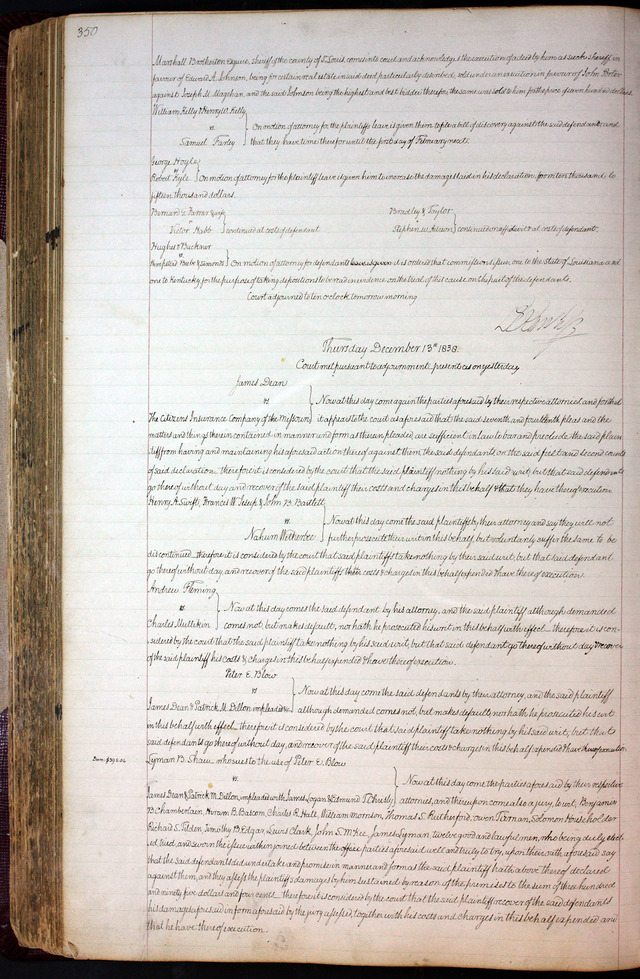 350
Marshall Brotherton Esquire, Sheriff of the county of St Louis, comes into court and acknowledges the execution of a deed by him as such sheriff in
favour of Edward A. Johnson, being for certain real estate in said deed particularly described, sold under an execution in favour of John
against Joseph M. and the said Johnson being the highest and best bidder therefor the same was sold to him for the price of seven hundred dollars.
William Kelly & Henry W. Kelly
vs.
Samuel Farley } On motion of attorney for the plaintiffs leave is given them to file a bill of discovery against the said defendant and
that they have time therefor until the first day of February next.
George Hoyle
vs
Robert Kyle } On motion of attorney for the plaintiff leave is given him to increase the damages laid in his declaration from ten thousand to
fifteen thousand dollars.
Bernard G. Farrar & wife
Victor Habb } continued at cost of defendant
Bradley & Taylor
Stephen W. } continued on affidavit at costs of defendant.
Hughes & Buckner
Beebe & Simonds } On motion of attorney for defendants leave is given it is ordered that commissions issue, one to the State of Louisiana and
one to Kentucky for the purpose of taking depositions to be read in evidence on the trial of this cause on the part of the defendants.
Court adjourned to ten o'clock tomorrow morning
Thursday December 13th 1838.
Court met pursuant to adjournment, present as on yesterday
James Dean
vs
The Citizens Insurance Company of the Missouri } Now at this day come again the parties aforesaid by their respective attornies and for that
it appears to the court as aforesaid that the said seventh and fourteenth pleas and the
matters and things therein contained in manner and form as therein pleaded, are sufficient in law to bar and preclude the said plain
tiff from having and maintaining his aforesaid action thereof against them the said defendants on the said first and second counts
of said declaration. Therefore it is considered by the court that the said plaintiff take nothing by his said writ; but that said defendants
go thereof without day and recover of the said plaintiff their costs and charges in this behalf & that they have thereof execution
Henry A. Swift, Francis W. & John B. Bartlett
vs.
Nahum Witherbee } Now at this day come the said plaintiffs by their attorney and say they will not
further prosecute their writ in this behalf, but voluntarily suffer the same to be
discontinued. Therefore it is considered by the court that said plaintiffs take nothing by their said writ, but that said defendant
go thereof without day, and recover of the said plaintiffs his costs & charges in this behalf expended & have thereof execution.
Andrew Fleming
vs
Charles Mullikin } Now at this day comes the said defendant by his attorney, and the said plaintiff although demanded
comes not, but makes default, nor hath he prosecuted his writ in this behalf with effect. Therefore it is con-
sidered by the court that the said plaintiff take nothing by his said writ, but that said defendant go thereof without day & recover
of the said plaintiff his costs & charges in this behalf expended & have thereof execution.
Peter E. Blow
vs
James Dean & Patrick M. Dillon, impleaded &c } Now at this day come the said defendants by their attorney, and the said plaintiff
although demanded comes not, but makes default, nor hath he prosecuted his writ
in this behalf with effect. Therefore it is considered by the court that said plaintiff take nothing by his said writ, but that
said defendants go thereof without day, and recover of the said plaintiff their costs & charges in this behalf expended & have thereof execution
Lyman B. Shaw who sues to the use of Peter E. Blow
vs.
James Dean & Patrick M. Dillon, impleaded with James Logan & Edmund T. Christy } Now at this day come the parties aforesaid by their respective
attornies, and thereupon come also a jury, to wit, Benjamin
B. Chamberlain, Hiram B. Bascom, Charles R. Hall, William Morrison, Thomas S. Rutherford, Owen Tiernan, Solomon Householder
Richard S. Tilden, Timothy B. Edgar, Lewis Clark, John S. McKee, James Lyman, twelve good and lawful men, who being duly elect
ed, tried, and sworn the issue within joined between the parties aforesaid well and truly to try, upon their oath aforesaid say
that the said defendants did undertake and promise in manner and form as the said plaintiff hath above thereof declared
against them, and they assess the plaintiffs damages by him sustained by reason of the premises to the sum of three hundred
and ninety five dollars and four cents. Therefore it is considered by the court that the said plaintiff recover of the said defendants
his damages aforesaid in form aforesaid by the jury assessed, together with his costs and charges in this behalf expended and
that he have thereof execution.